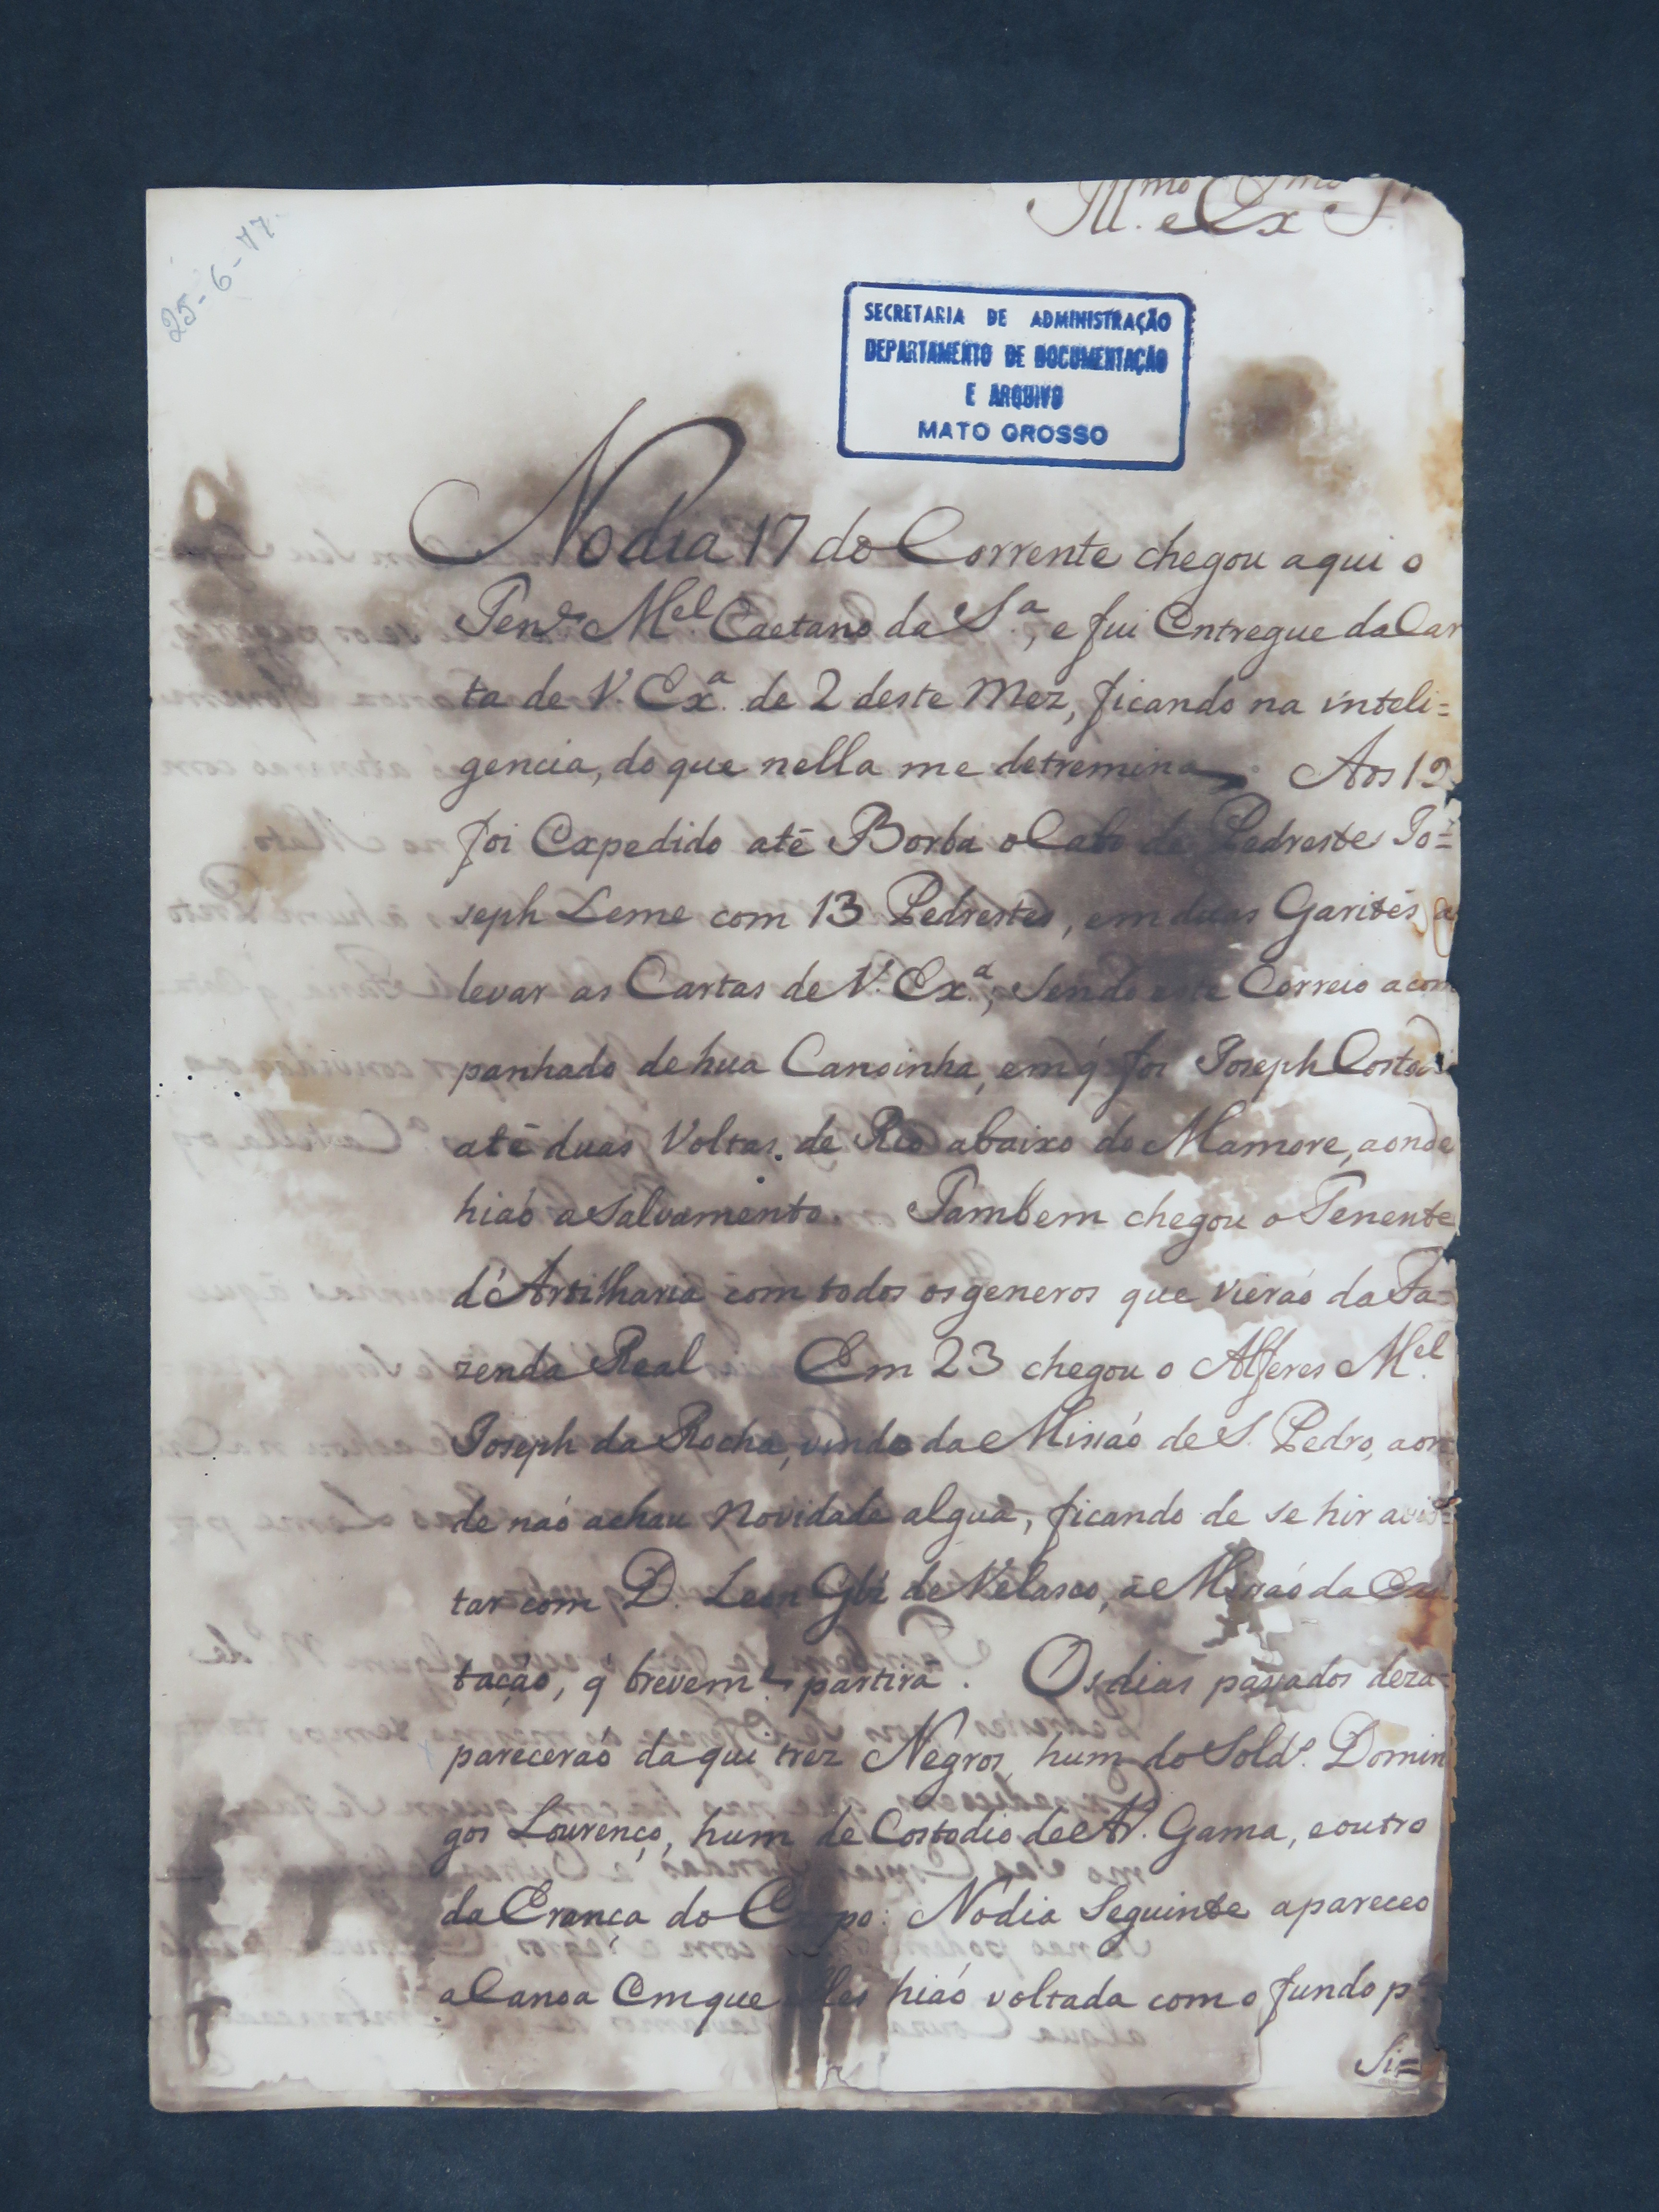 Ill.mo e Ex.mo S.
25-6-77
SECRETARIA DE ADMINISTRAÇÃO
DEPARTAMENTO DE DOCUMENTAÇÃO
E ARQUIVO
MATO GROSSO
No dia 17 do Corrente chegou aqui o
Ten.e M.el Caetano da S.a, e fui Entregue da Car
ta de V. Ex.a de 2 deste Mez, ficando na inteli=
gencia, do que nella me detremina. Aos 19
foi Expedido até Borba o Cabo de Pedreste Jo=
seph Leme com 13 Pedrestes, em duas Garités a
levar as Cartas de V. Ex.a, Sendo este Correio acom
panhado de hua Canoinha, em q̃ foi Joseph Costodi
até duas Voltas de Rio abaixo do Mamore, aonde
hiaó a Salvamento. Tambem chegou o Tenente
d'Artilharia com todos os generos que vieraó da Fa=
zenda Real Em 23 chegou o Alferes M.el
Joseph da Rocha, vindo da Missaó de S. Pedro, aon
de naó achau Novidade algua, ficando de se hir avis=
tar com D. Leon Glz de Velasco, á Missaó da Exal
tação, q̃ brevem.te partirá. Os dias passados deza=
pareceraó daqui trez Negros, hum do Sold.o Domin
gos Lourenço, hum de Costodio de Gama, e outro
da Erança do Crespo: No dia Seguinte apareceo
a Canoa Em que elles hiaó voltada com o fundo p.a
Si=